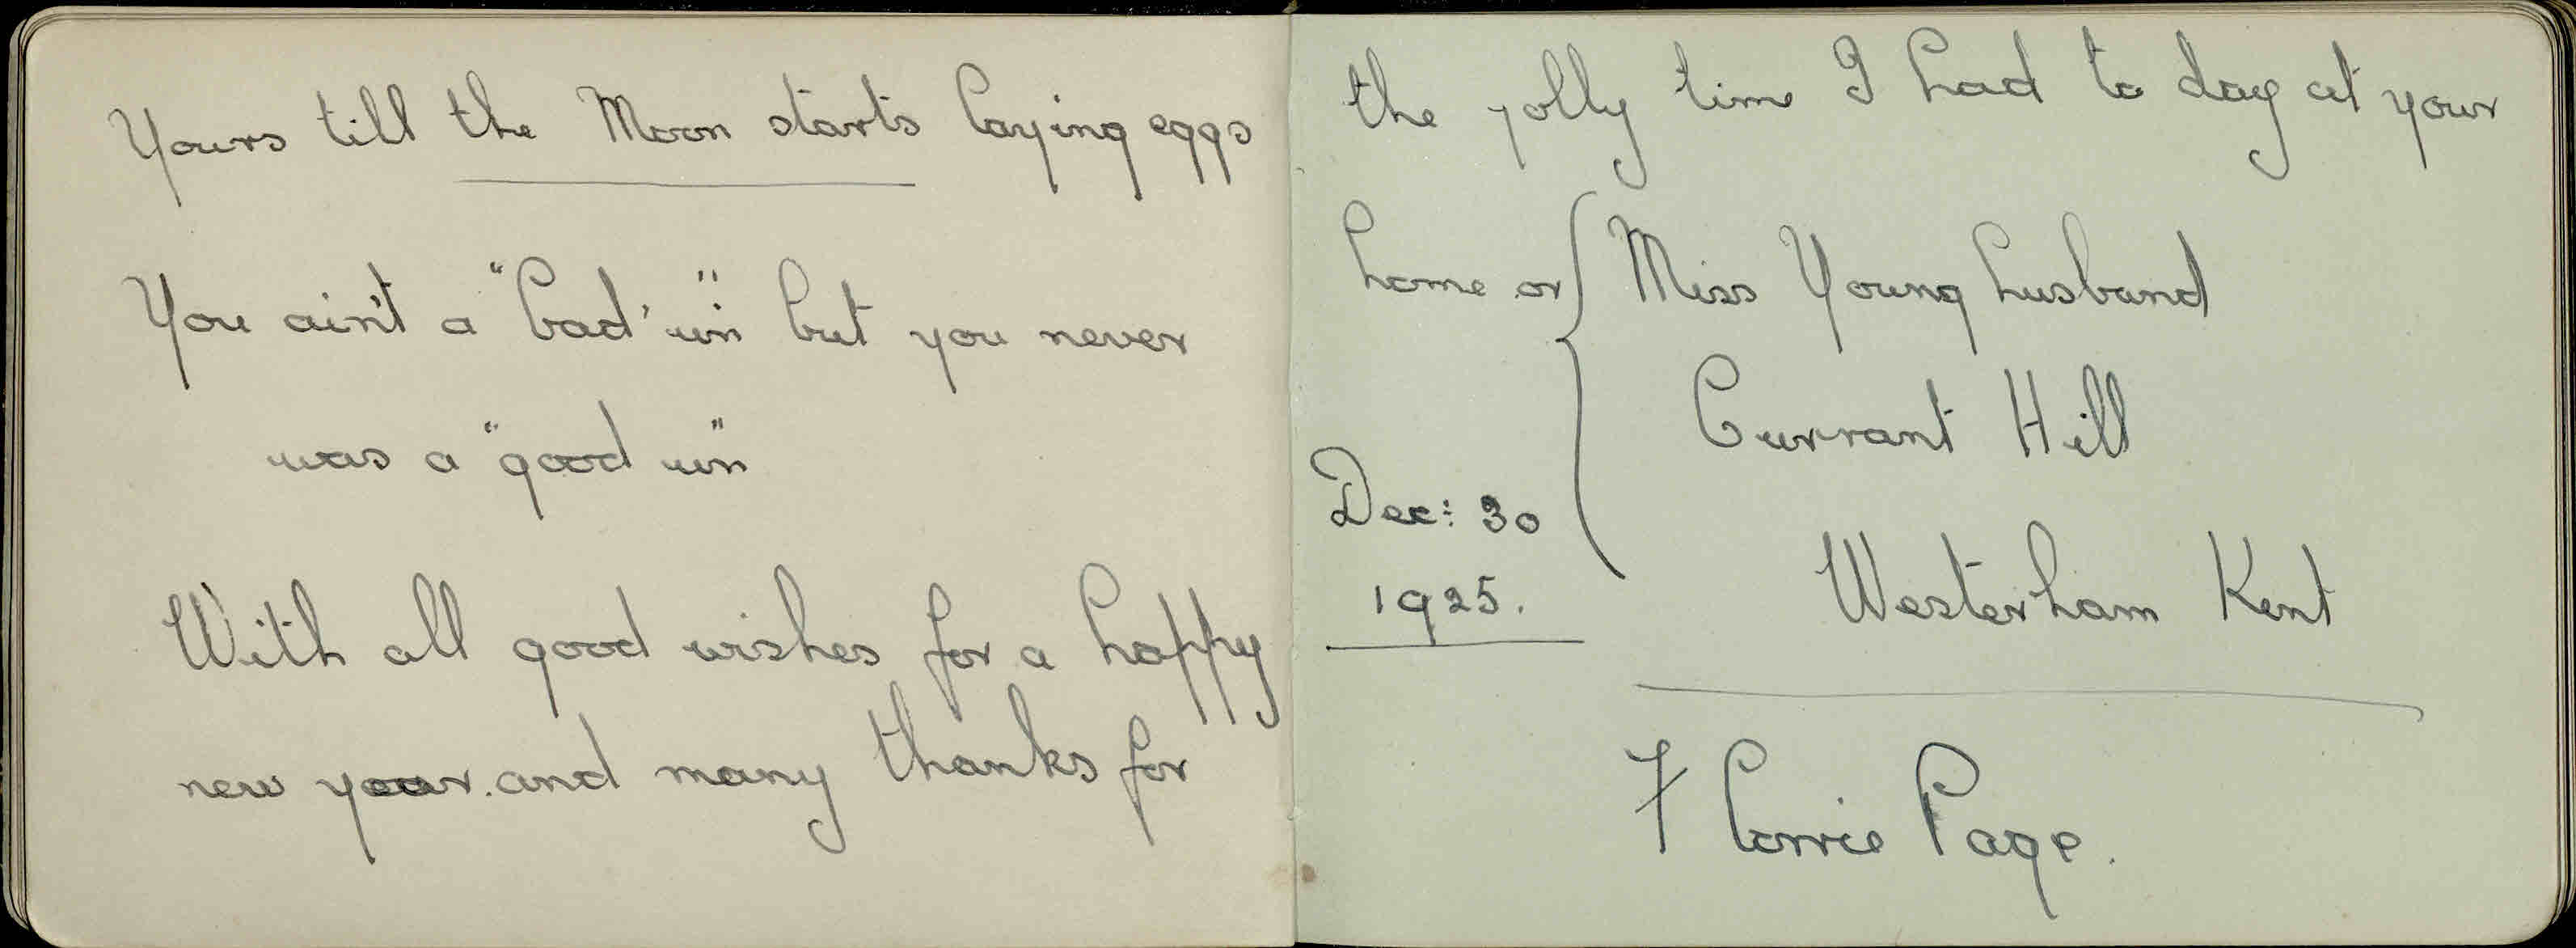 Yours till the Moon starts laying eggs
You ain't a "bad 'un" but you never
was a "good un"
With all good wishes for a happy
new year. and many thanks for
the jolly time I had to day at your
home or { Miss Young husband
Currant Hill
Dec: 30
1925.
Westerham Kent
Florrie Page.